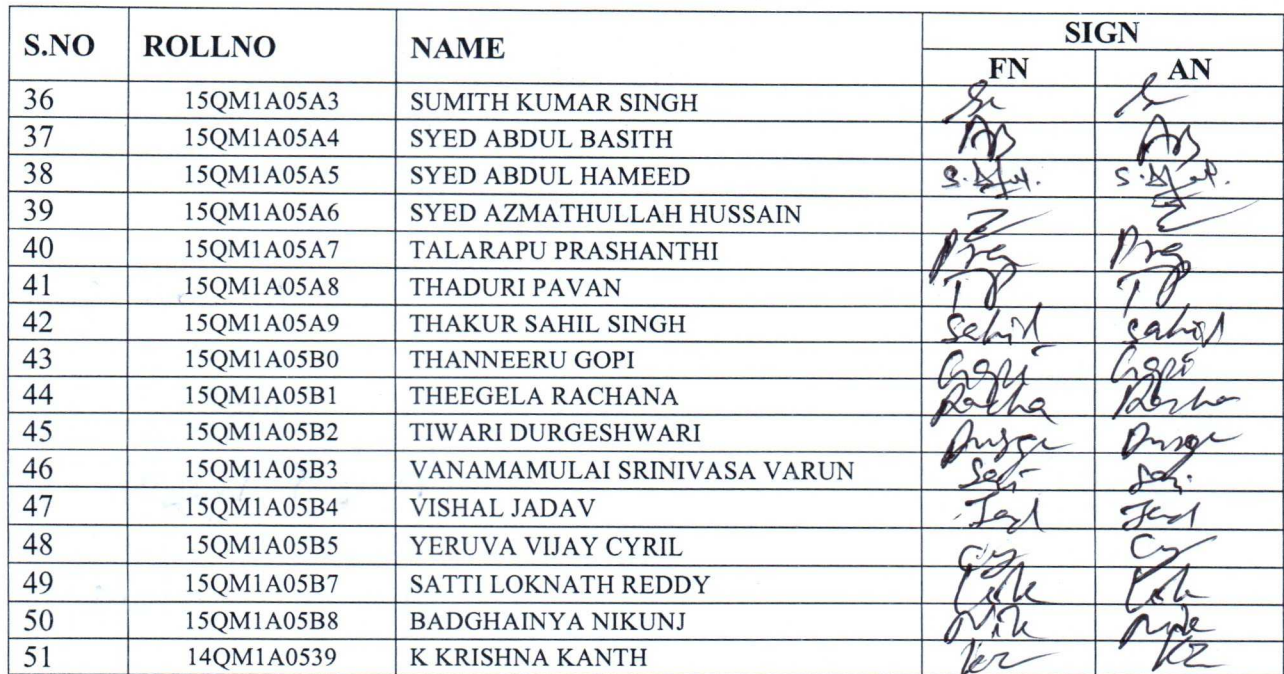 S.NO ROLLNO NAME SIGN
FN AN
36 15QM1A05A3 SUMITH KUMAR SINGH
37 15QM1A05A4 SYED ABDUL BASITH AB AB
38 15QM1A05A5 SYED ABDUL HAMEED
39 15QM1A05A6 SYED AZMATHULLAH HUSSAIN
40 15QM1A05A7 TALARAPU PRASHANTHI Pra Pra
41 15QM1A05A8 THADURI PAVAN TP TP
42 15QM1A05A9 THAKUR SAHIL SINGH Sahil Sahil
43 15QM1A05B0 THANNEERU GOPI Gopi Gopi
44 15QM1A05B1 THEEGELA RACHANA Racha
45 15QM1A05B2 TIWARI DURGESHWARI
46 15QM1A05B3 VANAMAMULAI SRINIVASA VARUN
47 15QM1A05B4 VISHAL JADAV
48 15QM1A05B5 YERUVA VIJAY CYRIL Cy Cy
49 15QM1A05B7 SATTI LOKNATH REDDY Lok Lok
50 15QM1A05B8 BADGHAINYA NIKUNJ Nik
51 14QM1A0539 K KRISHNA KANTH